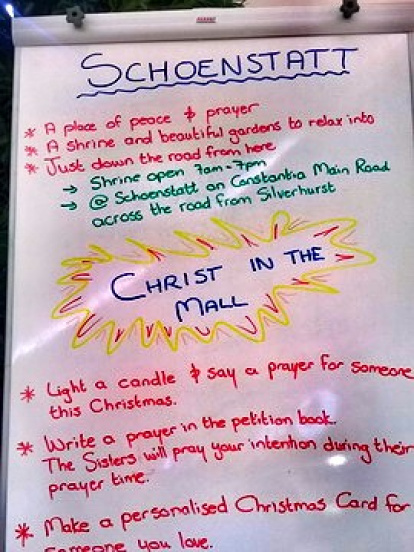 SCHOENSTATT
* A place of peace & prayer
* A shrine and beautiful gardens to relax into
* Just down the road from here
→ Shrine open 7am-7pm
→ @ Schoenstatt on Constantia Main Road
across the road from Silverhurst
CHRIST IN THE
MALL
* Light a candle & say a prayer for someone
this Christmas.
* Write a prayer in the petition book.
The Sisters will pray your intention during their
prayer time.
* Make a personalised Christmas Card for
someone you love.